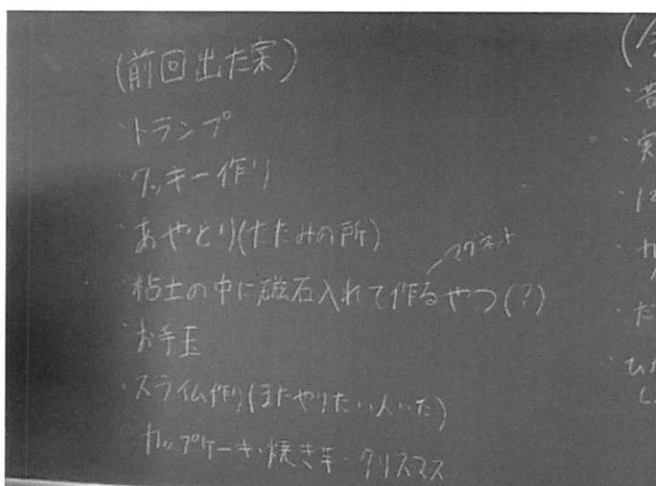 (前回出た案)
・トランプ
・クッキー作り
・あやとり(たたみの所)
マグネット
・粘土の中に磁石入れて作るやつ(?)
・お手玉
・スライム作り(またやりたい人いた)
カップケーキ・焼き芋・クリスマス